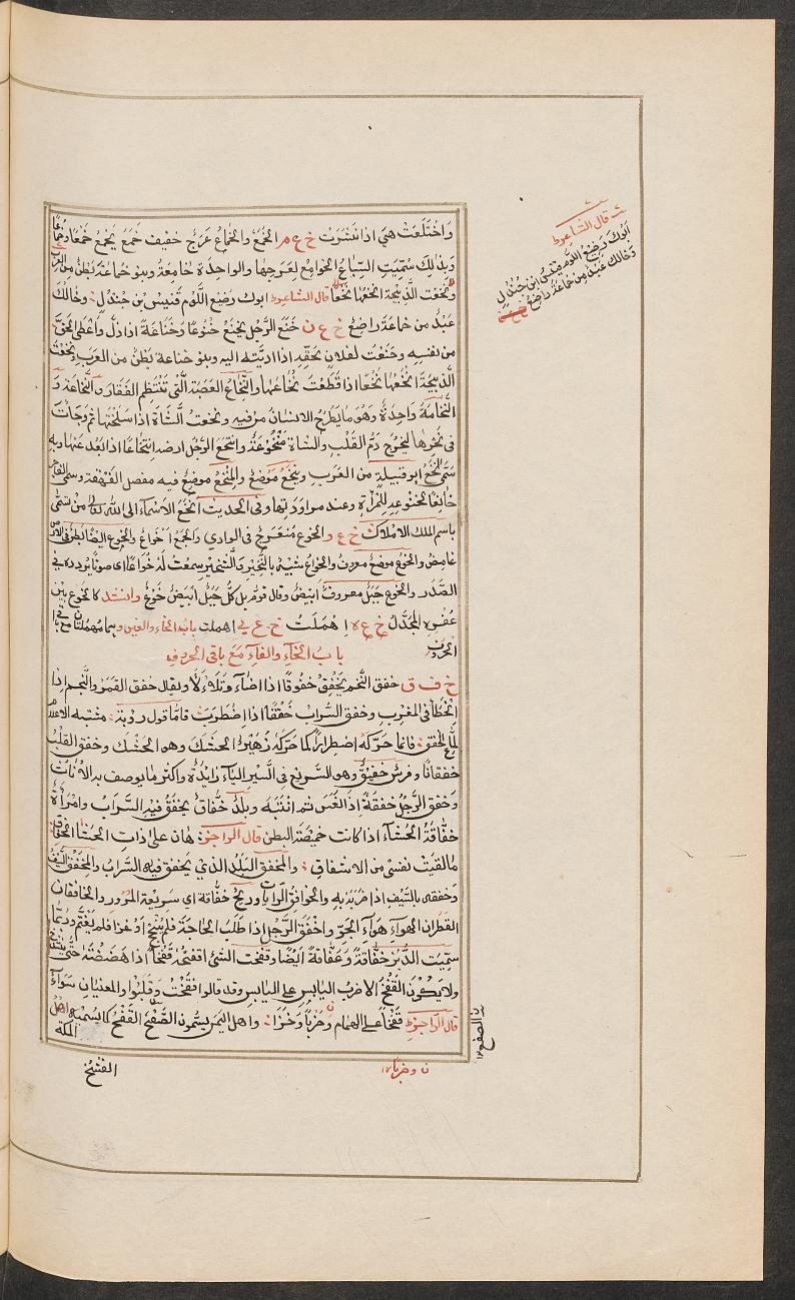 وَاخْتَلَعَتْ هِيَ اذا نَشَزَتْ خ ع م الخَمَعُ والخُمَاعُ عَرَجٌ خفيف خَمَعَ يخْمَعُ خَمْعًا وخُمَاعًا
وَبِذٰلِكَ سُمِّيَتِ السِّبَاعُ الخَوامِعُ لِعَرَجِهَا والواحِدَة خَامِعَةٌ وبنو خُمَاعَةَ بَطْنٌ مِنَ العَرَبِ
ونَخَعْتُ الذَّبِيحَةَ انخَعُهَا نَخْعًا قال الشاعر ابوك رَضِيعُ اللَّؤْمِ قيسُ بن جَنْدَلٍ وخالُكَ
عَبْدٌ من خماعَةَ راضِعُ خ ع ن خَنَعَ الرَّجُلُ يَخْنَعُ خُنُوعًا وَخَنَاعَةً اذا ذَلَّ وأَعْطَى الحَقَّ
من نفسِه وخَنَعْتُ لفلانٍ بحَقِّهِ اذا ادّيْتَه اليه وبنو خناعة بطْنٌ من العَرَب ونَخَعْتُ
الذَّبِيحَةَ انخَعُهَا نَخْعًا اذا قَطَعْتَ نُخَاعَهَا والنُّخَاعُ العَصَبَة الَّتِي تَنْتَظِم الفَقَارَ والنُّخَاعَة وَ
النُّخَامَةُ وَاحِدَةٌ وَهُوَ مَا يَطْرَحُ الانسانُ مِن فِيه ونخعتُ الشَّاةَ اذا سَلَخْتَهَا ثُم وَجَأْتَ
فى نَحْرِهَا ليَخْرُجَ دَمُ القَلْبِ والشاة مَنْخُوعَةٌ وانتخع الرَّجُل ارضه انتِخَاعًا اذا بَعُدَ عنها وبه
سُمِّىَ النَّخَعُ ابو قبيلةٍ من العَرَب ويَنْخَعُ مَوْضِعٌ والمَنْخَعُ موضِعٌ فيه مفصل الفَهْقة وسُمّى
خانِعًا لخنوعِهِ للمَرْأةِ وعند مراوَدَتِها وفى الحديث انخَعُ الاَسْمَآءِ الى الله تعالى مَنْ تسَمَّى
باسم مَلِك الاملاك خ ع و والخَوْعُ مُنعَرَجٌ فى الوادي والجَمْعُ اَخْوَاعٌ والخَوْعُ ايضًا بَطْنٌ فى الارض
غامِضٌ والخَوْعُ موضعٌ معروفٌ والخُوَاعُ شبيهٌ بالنَّخِيرِ وَالشَّخِيرِ سمعْتُ لهُ خُوَاعًا اى صوتًا يُردّده فى
الصَّدْرِ والخَوْعُ جَبَلٌ معروفٌ ابْيَضُ وقال قومٌ بل كلّ جَبَلٍ اَبْيَضَ خَوْعٌ وانشد كا يخوع بين
المجَدَّلِ خ ع ه اُهْمِلَتْ خ ع ي اهملت بابُ الخاءِ والغين وهما مهملتان مع باقى
الحروف
بَابُ الخَاءِ والفَاءِ مَعَ باقى الحروف
خ ف ق خفق النَّجْم يَخْفِقُ خُفُوقًا اذا اضَاءَ وتَلَأْلَأَ ويقال خفق القَمَرُ والنَّجم اذا
انحَطَّا فى المغرب وخفق السَّرابُ خَفْقًا اذا اضْطَرَبَ فامّا قول رؤبة مشتبه الاعلام
لمَّاعِ الخَفَقْ فانّما حَرَّكَهُ اضطِرارًا كما حَرَّكَ زُهَيْرٌ الحَشَكَ وهو الحَشْك وخفق القَلْبُ
خفقانًا وفرسٌ خَيْفَقٌ وهو السَّرِيع فى السَّيْرِ الياءُ زائِدَةٌ واكثر ما يوصف به الاناث
وَخفق الرَّجُلُ خفقَةً اِذا نَعَسَ ثم انْتَبَهَ وبَلَدٌ خفّاقٌ يخفق فيه السَّرابُ وامْرَأَةٌ
خفَّاقَةُ الحَشَاءِ اذا كانت خميصَةَ البطن قال الراجز هان على ذات الحَشَا الخفَّاقِ
مَالَقِيَتْ نفسى من الاشفاقِ والمخفق البَلَدُ الذي يَخفق فيه السَّرابُ والمِخْفَقُ السَّيْفُ
وَخفقه بالسَّيْفِ اذا ضَرَبَه به والخوافِقُ الرّاياتُ وريحٌ خفّاقة اى سَرِيعَة المُرور والخافقان
القطران الهواءِ هَوَاءِ الجَوّ واخْفَقَ الرَّجُل اذا طَلَبَ الحَاجَةَ فلم يُنْجِحْ اَوْ غَزا فلم يَغْنَمْ ورُبَّمَا
سمِّيَت الدُّبُرُ خفّاقَةً وَعَفّاقةً اَيْضًا وقفخت الشئ اقفَخُه قَفْخًا اذا هَضَضْتَهُ حتّى
ولا يَكُونُ القَفْخُ الا ضربَ اليابِسِ على اليابس وقد قالوا فقَخْتُ وقَلَبُوا والمعنيان سَوَآءٌ
قال الراجز قفخًا على الهام وضربًا وَخْزَا واهل اليمن يسمُّون الصَّفْعَ القَفْخَ كما يسمِّيه اهلُ
المكة
قال الشاعر
اَبُوكَ رَضِيعُ اللّؤمِ قيسُ ابن جَنْدَلٍ
وَخالُكَ عَبْدٌ مِن خماعَةَ راضِعُ
ن الصفع ١٢
ن وضربًا ١٢
الفَتْخُ